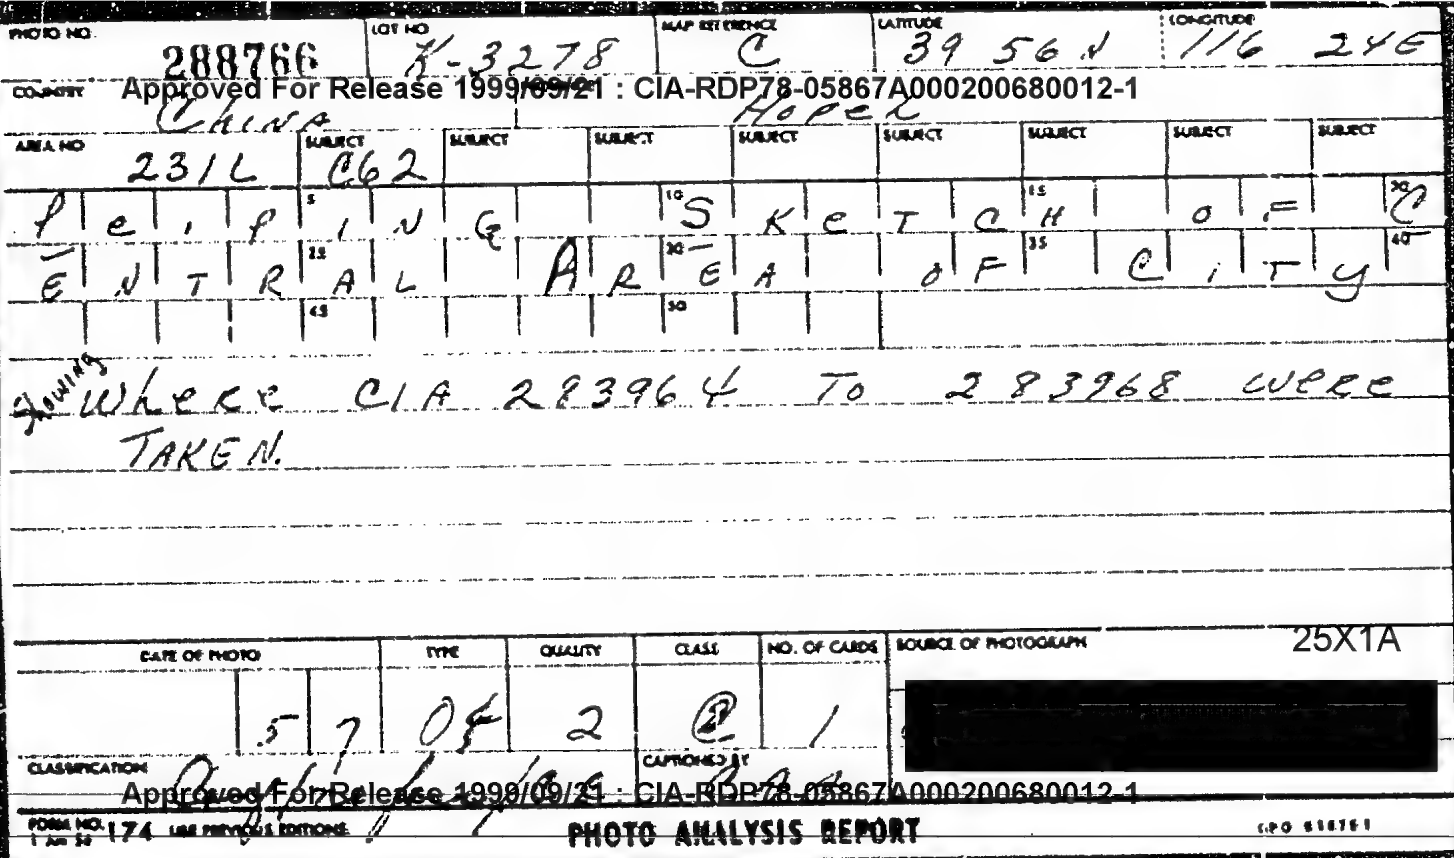 PHOTO NO. 288766 LOT NO K-3278 MAP REFERENCE C LATITUDE 39 56 N LONGITUDE 116 24E
Approved For Release 1999/09/21 : CIA-RDP78-05867A000200680012-1
COUNTRY China Hopei
AREA NO 231L SUBJECT C62 SUBJECT SUBJECT SUBJECT SUBJECT SUBJECT SUBJECT SUBJECT
PeiPING SKeTCH OF C
5 10 15 20
ENTRAL AREA OF CiTy
25 30 35 40
45 50
Showing where CIA 283964 To 283968 were
TAKEN.
DATE OF PHOTO TYPE QUALITY CLASS NO. OF CARDS SOURCE OF PHOTOGRAPH 25X1A
57 2 1
CLASSIFICATION CAPTIONED BY
Approved For Release 1999/09/21 : CIA-RDP78-05867A000200680012-1
FORM NO. 174 USE PREVIOUS EDITIONS. PHOTO ANALYSIS REPORT GPO